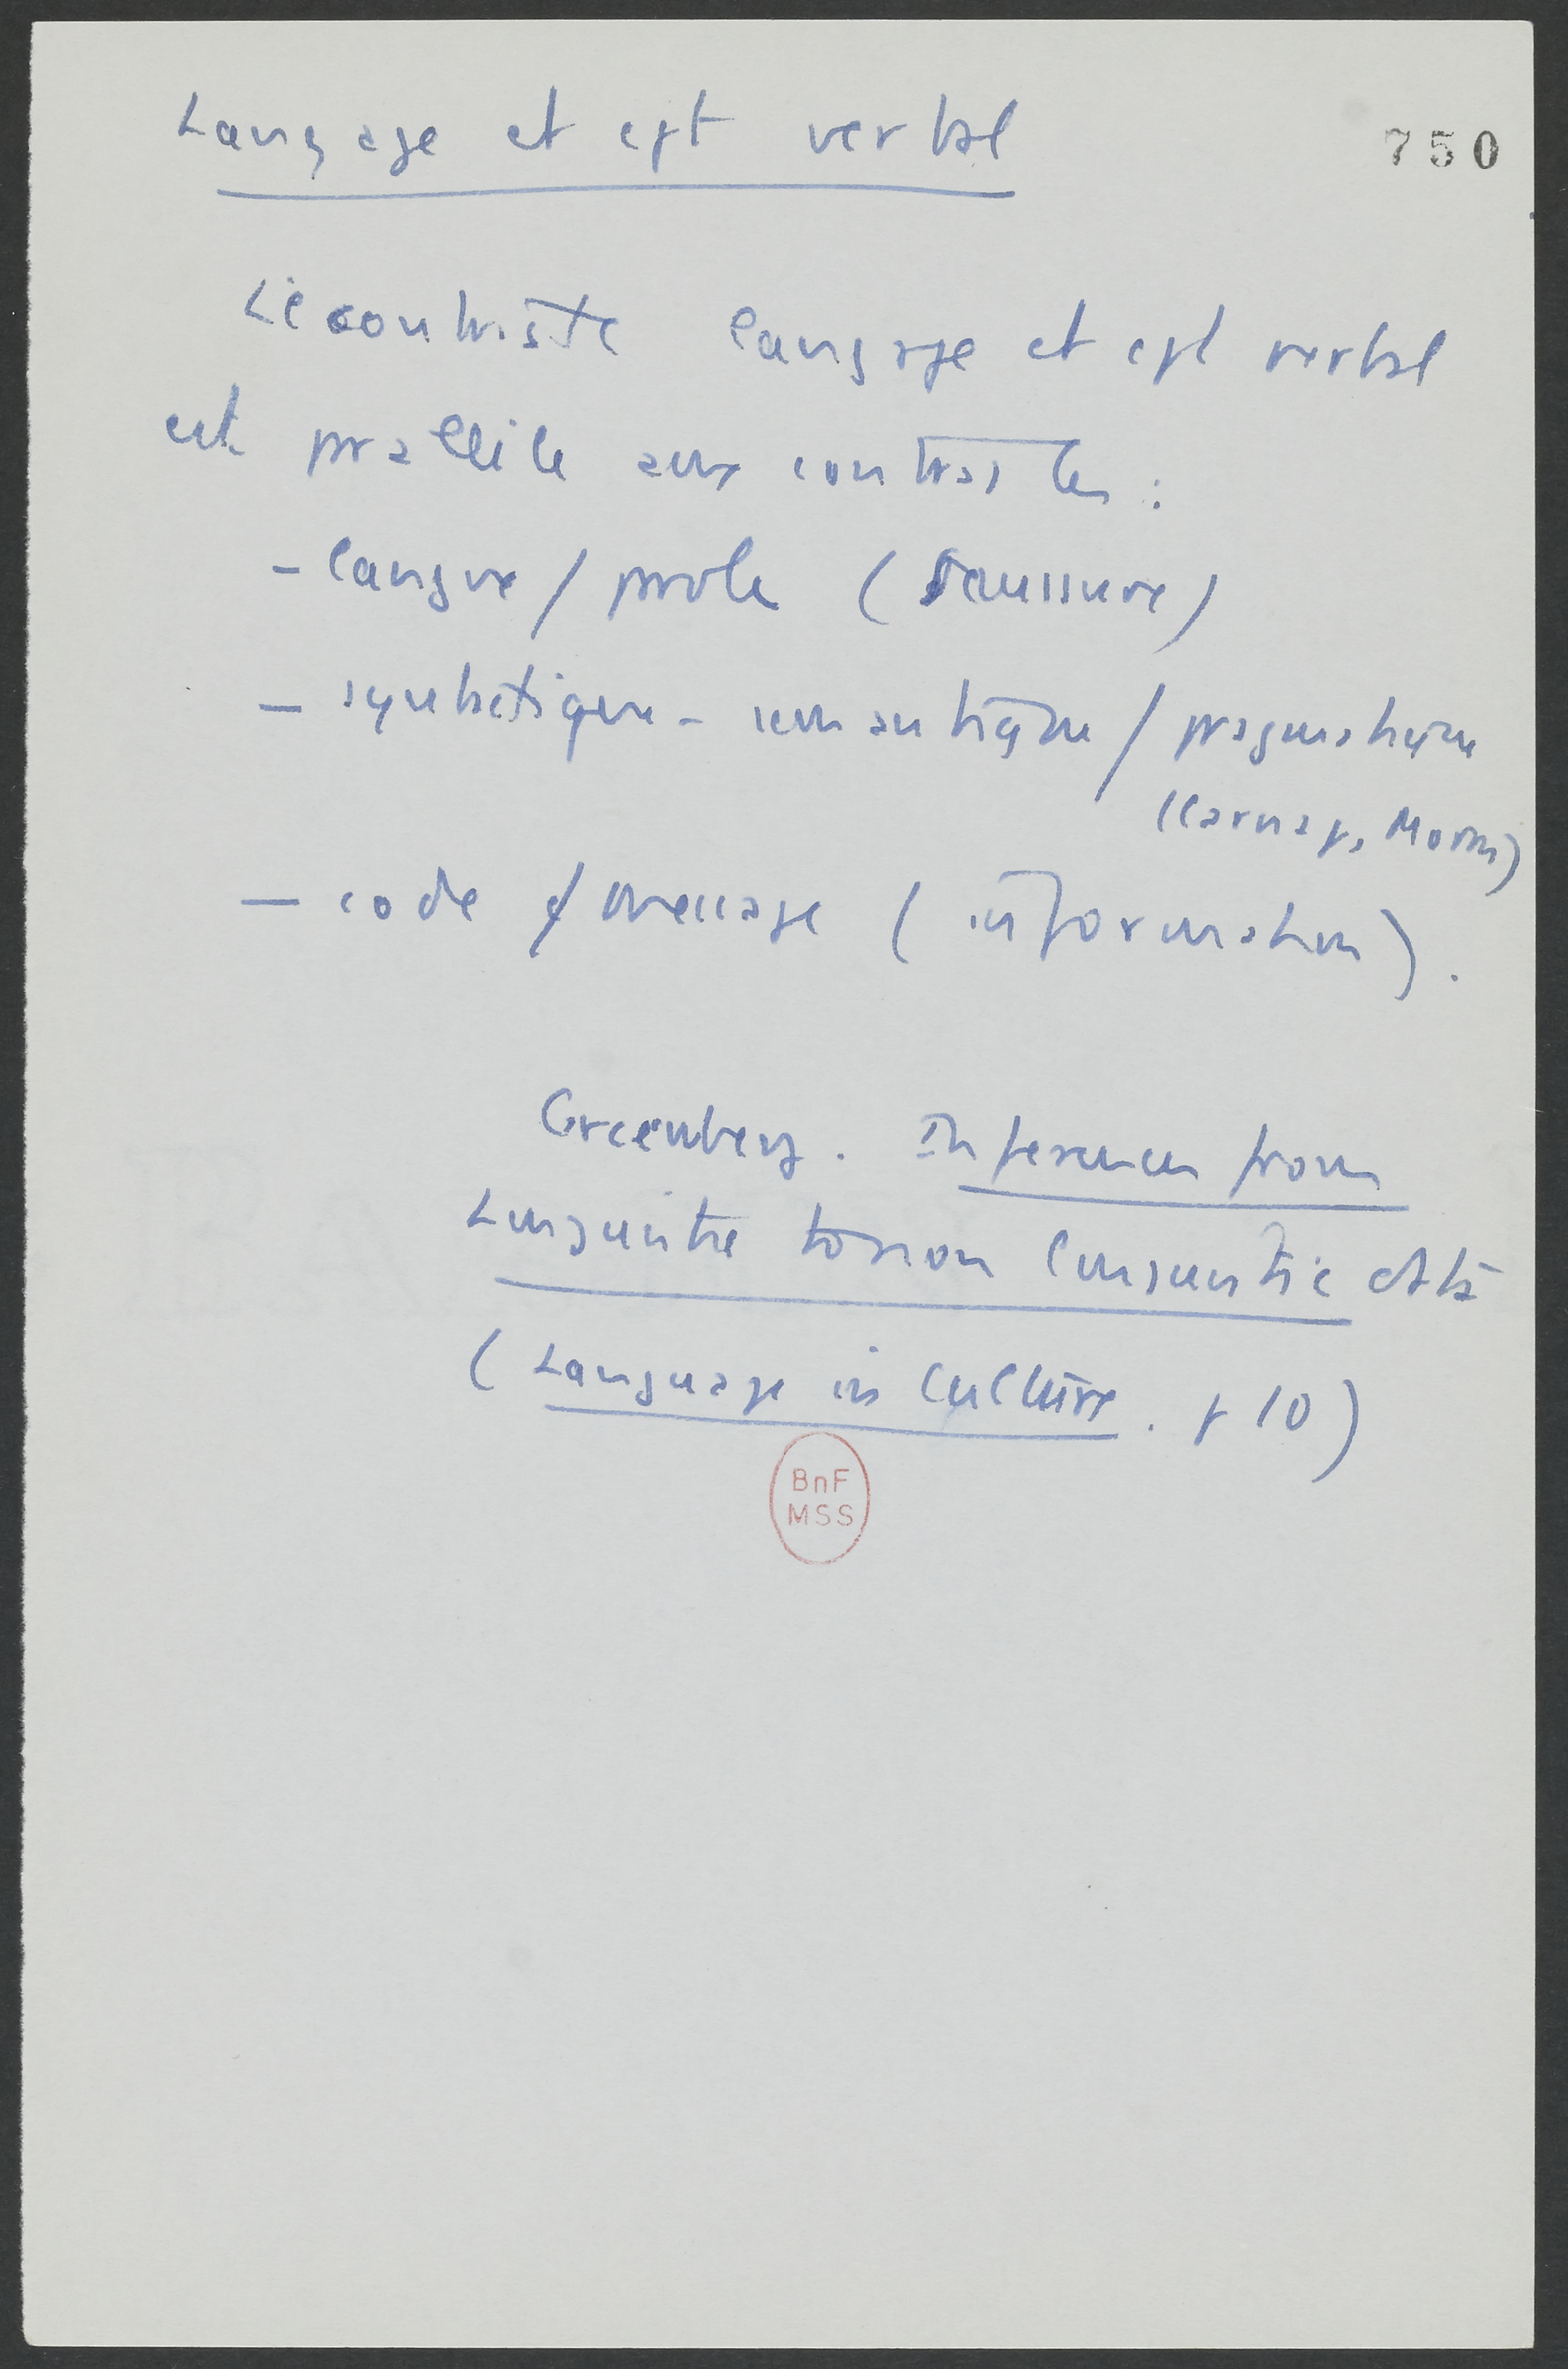 Langage et cpt verbal
750
Le contraste langage et cpt verbal
est parallèle aux contrastes :
- langue / parole (Saussure)
- syntactique - semantique / pragmatique
(Carnap, Morris)
- code / message (information).
Greenberg. Inferences from
Linguistic to non linguistic data
(Language in Culture. p 10)
BnF
MSS